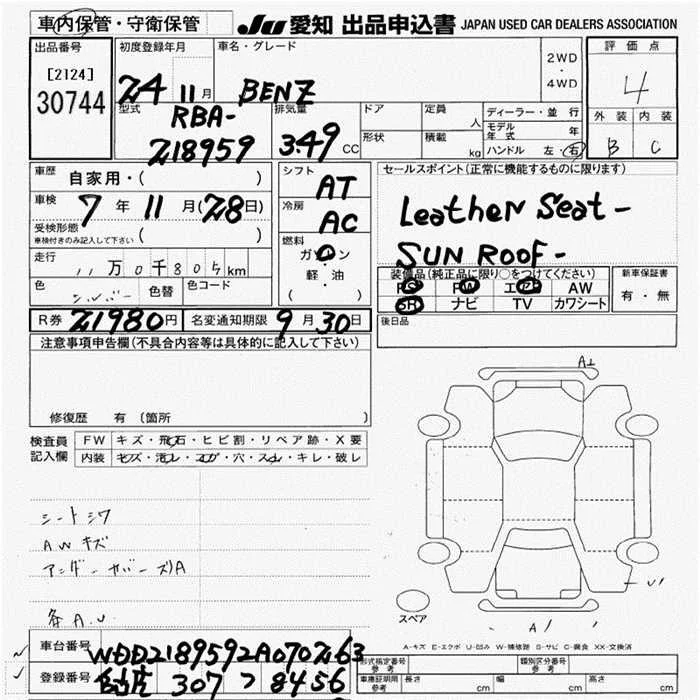 車内保管・守衛保管
JU 愛知 出品申込書 JAPAN USED CAR DEALERS ASSOCIATION
出品番号
[2124]
30744
初度登録年月
24 11月
車名・グレード
BENZ
2WD
・
4WD
評価点
4
外装 内装
B C
型式
RBA-
218959
排気量
3.49 CC
ドア
形状
定員 人
積載 kg
ディーラー・並行
モデル年式 年
ハンドル 左・右
車歴 自家用・( )
車検 7年 11月(28日)
受検形態 ( )
車検付きのみ記入して下さい
走行 11万0千805km
色 シルバー 色替 色コード
シフト AT
冷房 AC
燃料
ガソリン
軽・油
( )
セールスポイント(正常に機能するものに限ります)
Leather Seat-
SUN ROOF-
装備品(純正品に限り○をつけてください)
PS PW エアB AW
SR ナビ TV カワシート
新車保証書
有・無
後日品
R券 21980円 名変通知期限 9月30日
注意事項申告欄(不具合内容等は具体的に記入して下さい)
修復歴 有(箇所 )
検査員記入欄
FW キズ・飛石・ヒビ割・リペア跡・X要
内装 キズ・汚レ・コゲ・穴・スレ・キレ・破レ
シートシワ
AWキズ
アンダーカバーズA
各A.U.
A1
U1
A1
スペア
A-キズ E-エクボ U-凹み W-補修跡 S-サビ C-腐食 XX-交換済
車台番号 WDD2189592A070263
登録番号 名古屋 307 フ 8456
形式指定番号
参考
類別区分番号
参考
車庫証明用
参考
長さ cm 幅 cm 高さ cm